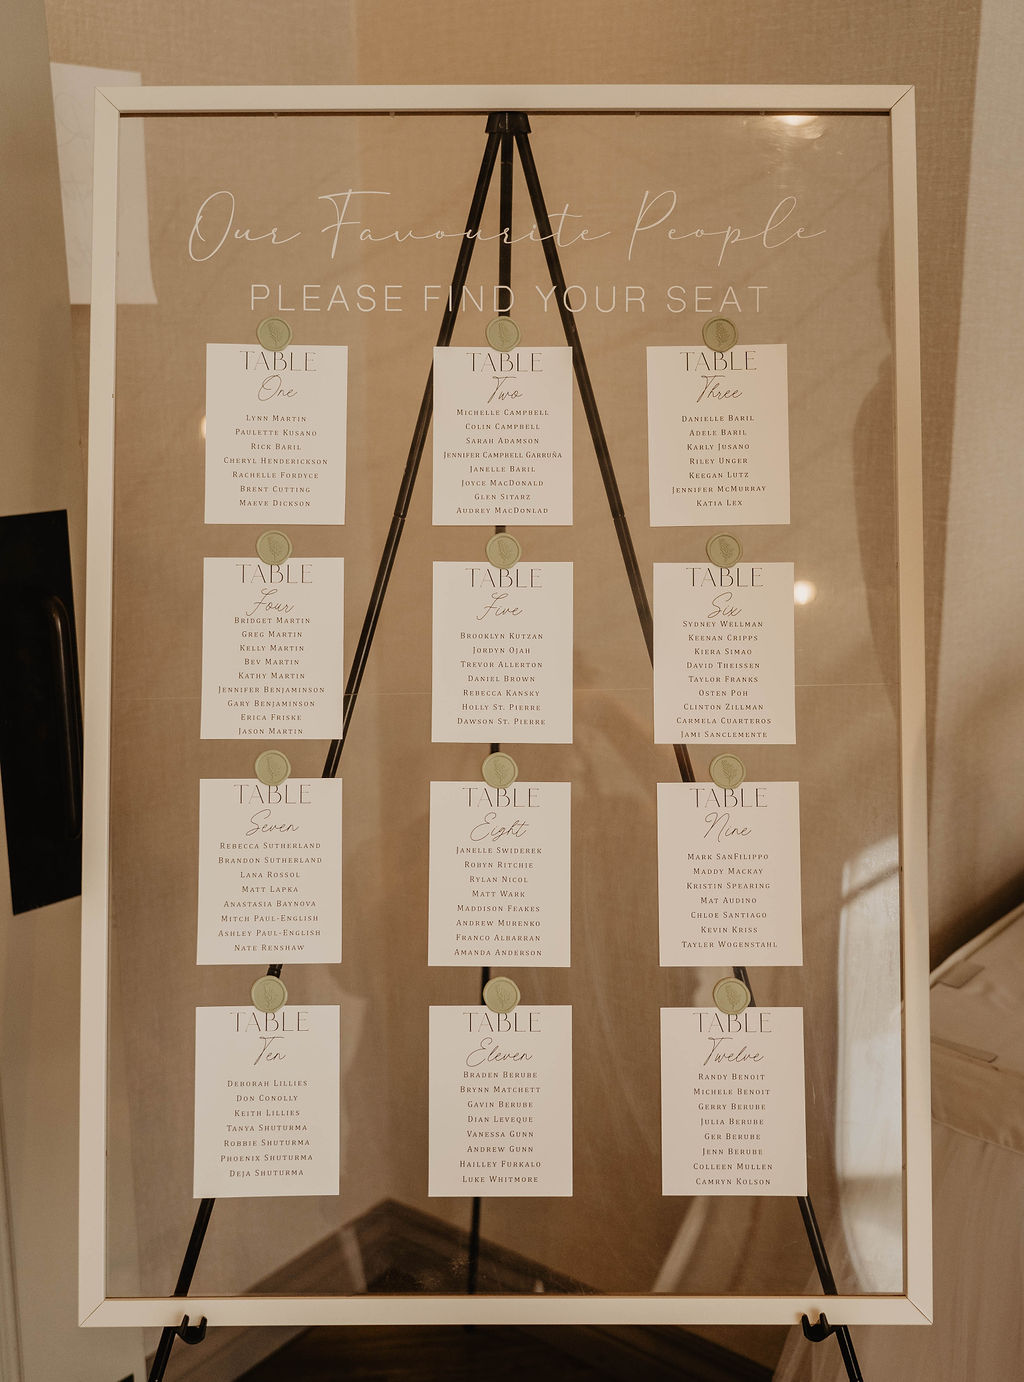 Our Favourite People
PLEASE FIND YOUR SEAT
TABLE
One
LYNN MARTIN
PAULETTE KUSANO
RICK BARIL
CHERYL HENDERICKSON
RACHELLE FORDYCE
BRENT CUTTING
MAEVE DICKSON
TABLE
Two
MICHELLE CAMPBELL
COLIN CAMPBELL
SARAH ADAMSON
JENNIFER CAMPBELL GARRUÑA
JANELLE BARIL
JOYCE MACDONALD
GLEN SITARZ
AUDREY MACDONLAD
TABLE
Three
DANIELLE BARIL
ADELE BARIL
KARLY JUSANO
RILEY UNGER
KEEGAN LUTZ
JENNIFER MCMURRAY
KATIA LEX
TABLE
Four
BRIDGET MARTIN
GREG MARTIN
KELLY MARTIN
BEV MARTIN
KATHY MARTIN
JENNIFER BENJAMINSON
GARY BENJAMINSON
ERICA FRISKE
JASON MARTIN
TABLE
Five
BROOKLYN KUTZAN
JORDYN OJAH
TREVOR ALLERTON
DANIEL BROWN
REBECCA KANSKY
HOLLY ST. PIERRE
DAWSON ST. PIERRE
TABLE
Six
SYDNEY WELLMAN
KEENAN CRIPPS
KIERA SIMAO
DAVID THEISSEN
TAYLOR FRANKS
OSTEN POH
CLINTON ZILLMAN
CARMELA CUARTEROS
JAMI SANCLEMENTE
TABLE
Seven
REBECCA SUTHERLAND
BRANDON SUTHERLAND
LANA ROSSOL
MATT LAPKA
ANASTASIA BAYNOVA
MITCH PAUL-ENGLISH
ASHLEY PAUL-ENGLISH
NATE RENSHAW
TABLE
Eight
JANELLE SWIDEREK
ROBYN RITCHIE
RYLAN NICOL
MATT WARK
MADDISON FEAKES
ANDREW MURENKO
FRANCO ALBARRAN
AMANDA ANDERSON
TABLE
Nine
MARK SANFILIPPO
MADDY MACKAY
KRISTIN SPEARING
MAT AUDINO
CHLOE SANTIAGO
KEVIN KRISS
TAYLER WOGENSTAHL
TABLE
Ten
DEBORAH LILLIES
DON CONOLLY
KEITH LILLIES
TANYA SHUTURMA
ROBBIE SHUTURMA
PHOENIX SHUTURMA
DEJA SHUTURMA
TABLE
Eleven
BRADEN BERUBE
BRYNN MATCHETT
GAVIN BERUBE
DIAN LEVEQUE
VANESSA GUNN
ANDREW GUNN
HAILLEY FURKALO
LUKE WHITMORE
TABLE
Twelve
RANDY BENOIT
MICHELE BENOIT
GERRY BERUBE
JULIA BERUBE
GER BERUBE
JENN BERUBE
COLLEEN MULLEN
CAMRYN KOLSON